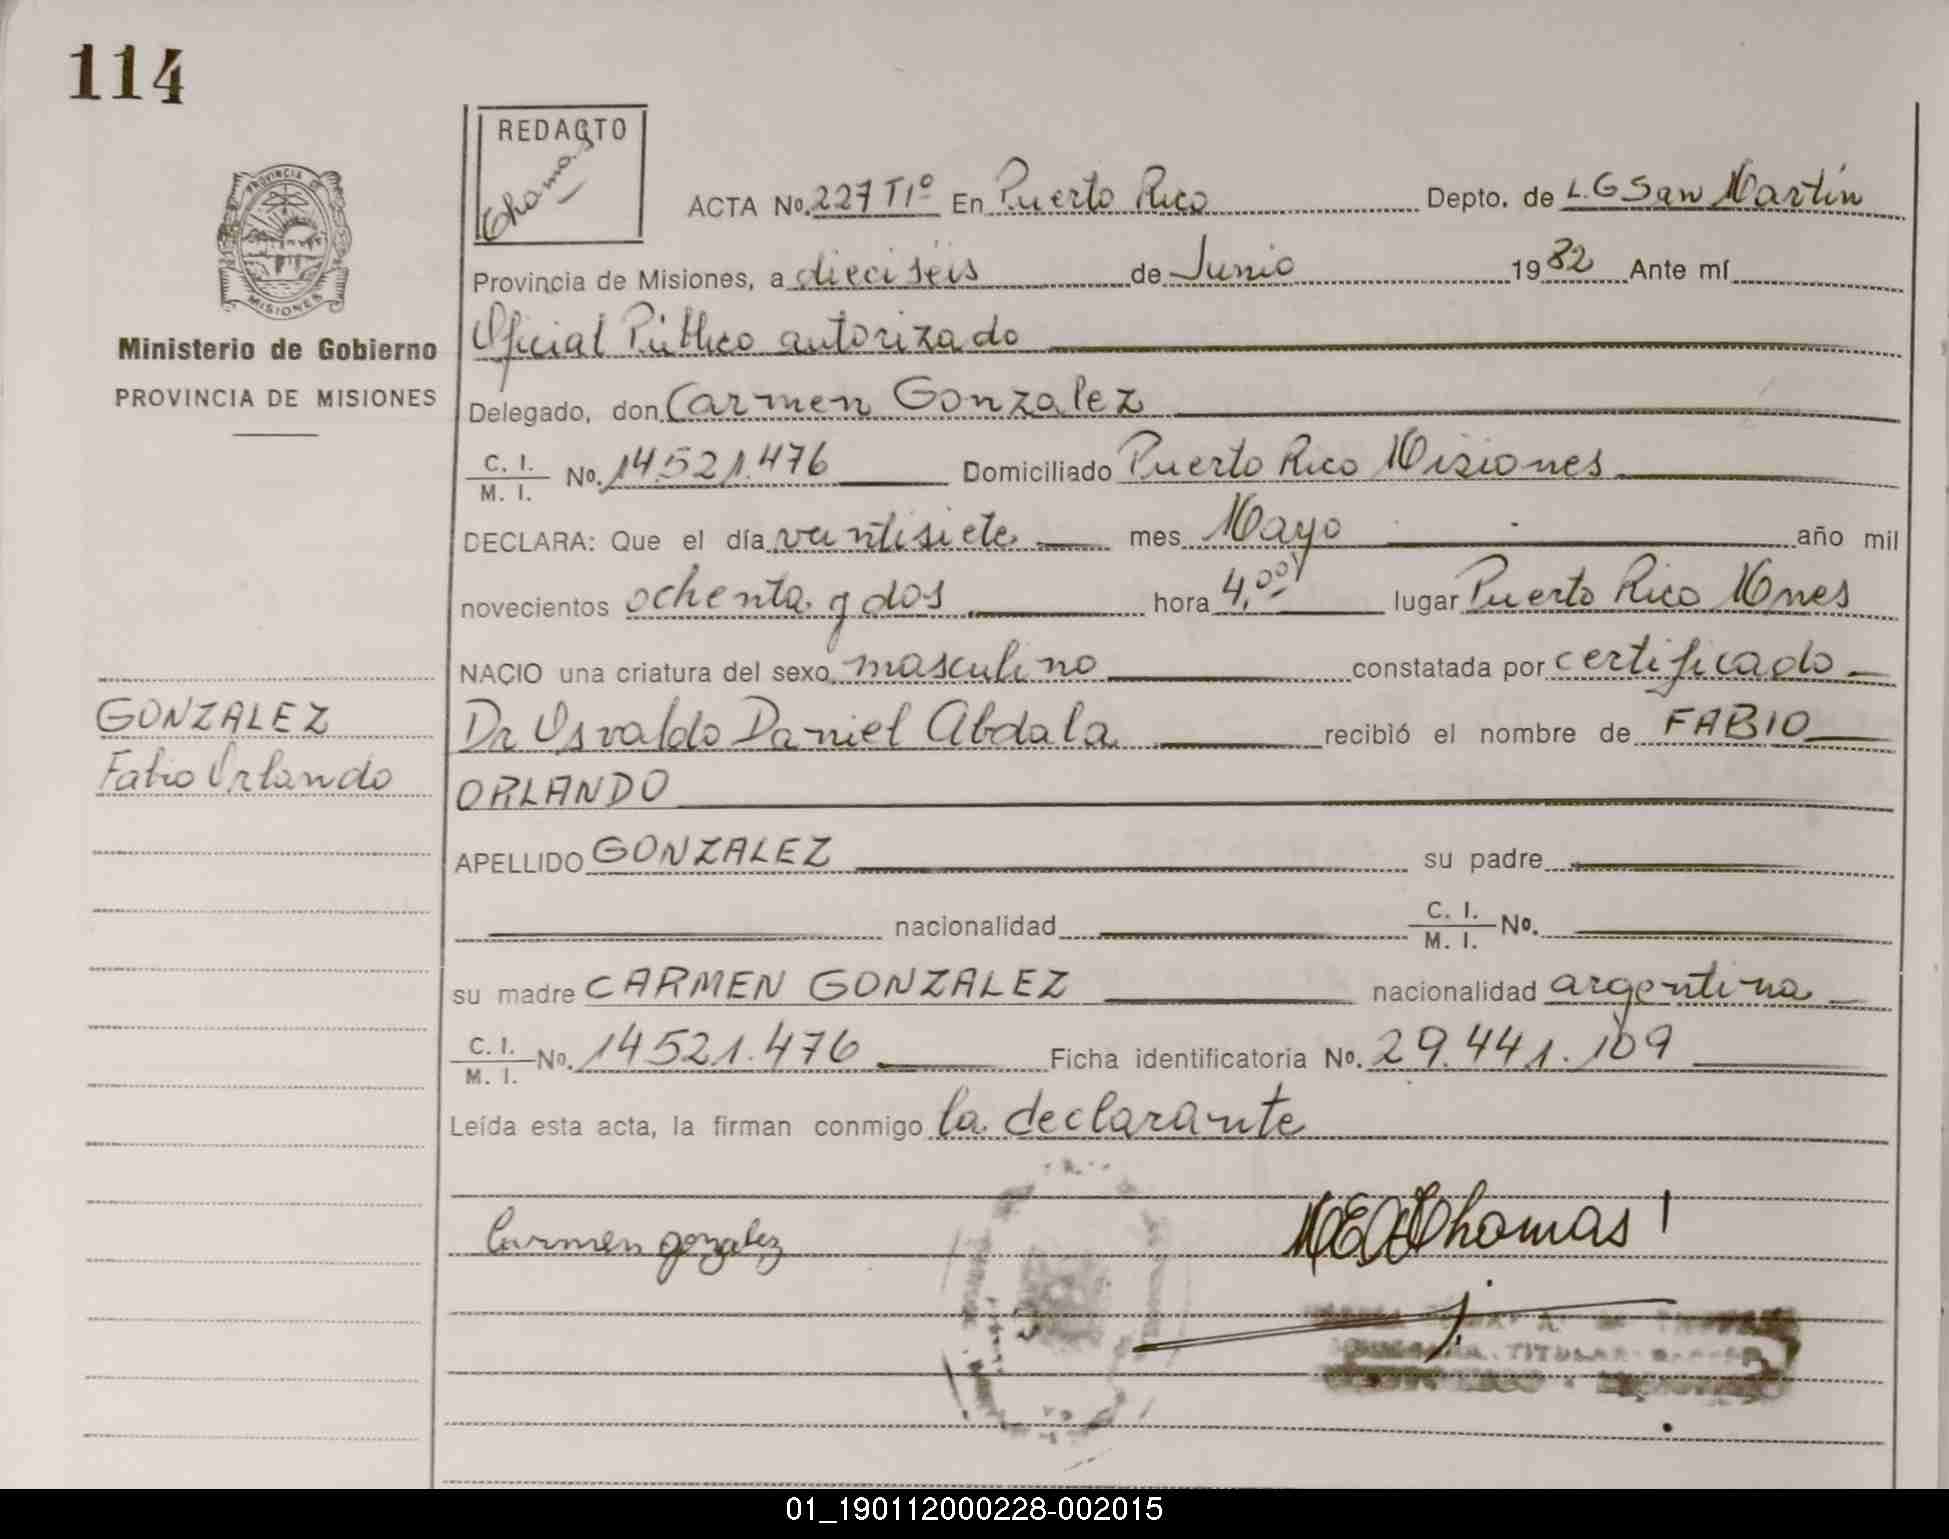 114
REDACTO
Thomas
PROVINCIA DE
MISIONES
ACTA No. 227 T1º En Puerto Rico Depto. de L.G San Martín
Provincia de Misiones, a dieciséis de Junio 1982 Ante mí
Ministerio de Gobierno
Oficial Público autorizado
PROVINCIA DE MISIONES
Delegado, don Carmen Gonzalez
C. I. / M. I. No. 14.521.476 Domiciliado Puerto Rico Misiones
DECLARA: Que el día veintisiete mes Mayo año mil
novecientos ochenta y dos hora 4,00 lugar Puerto Rico Mnes
NACIO una criatura del sexo masculino constatada por certificado
GONZALEZ
Dr Osvaldo Daniel Abdala recibió el nombre de FABIO
Fabio Orlando
ORLANDO
APELLIDO GONZALEZ su padre
nacionalidad C. I. / M. I. No.
su madre CARMEN GONZALEZ nacionalidad argentina
C. I. / M. I. No. 14521.476 Ficha identificatoria No. 29.441.109
Leída esta acta, la firman conmigo la declarante
Carmen gonzalez
Thomas
TITULAR
01_190112000228-002015